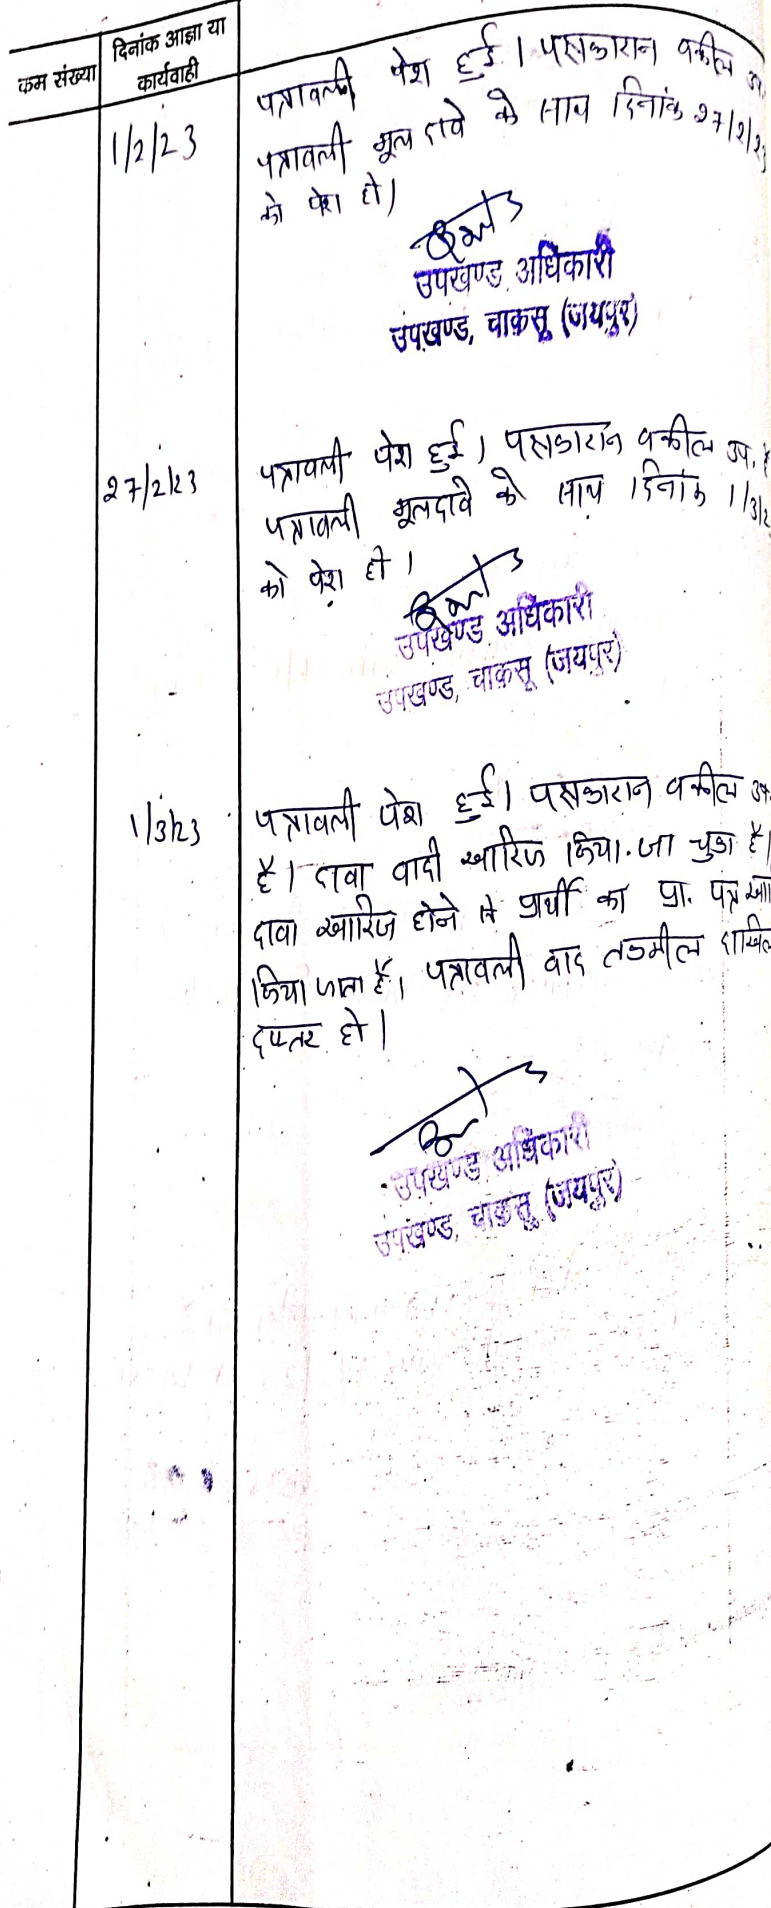 कम संख्या
दिनांक आज्ञा या
कार्यवाही
1/2/23
पत्रावली पेश हुई । पक्षकारान वकील उप.
पत्रावली मूल दावे के साथ दिनांक 27/2/23
को पेश हो।
उपखण्ड अधिकारी
उपखण्ड, चाकसू (जयपुर)
27/2/23
पत्रावली पेश हुई । पक्षकारान वकील उप. है
पत्रावली मूलदावे के साथ दिनांक 1/3/2
को पेश हो ।
उपखण्ड अधिकारी
उपखण्ड, चाकसू (जयपुर)
1/3/23
पत्रावली पेश हुई। पक्षकारान वकील उप.
है । दावा वादी खारिज किया जा चुका है।
दावा खारिज होने से प्रार्थी का प्रा. पत्र खा
किया जाता है। पत्रावली बाद तकमील दाखिल
दफ्तर हो ।
उपखण्ड अधिकारी
उपखण्ड, चाकसू (जयपुर)